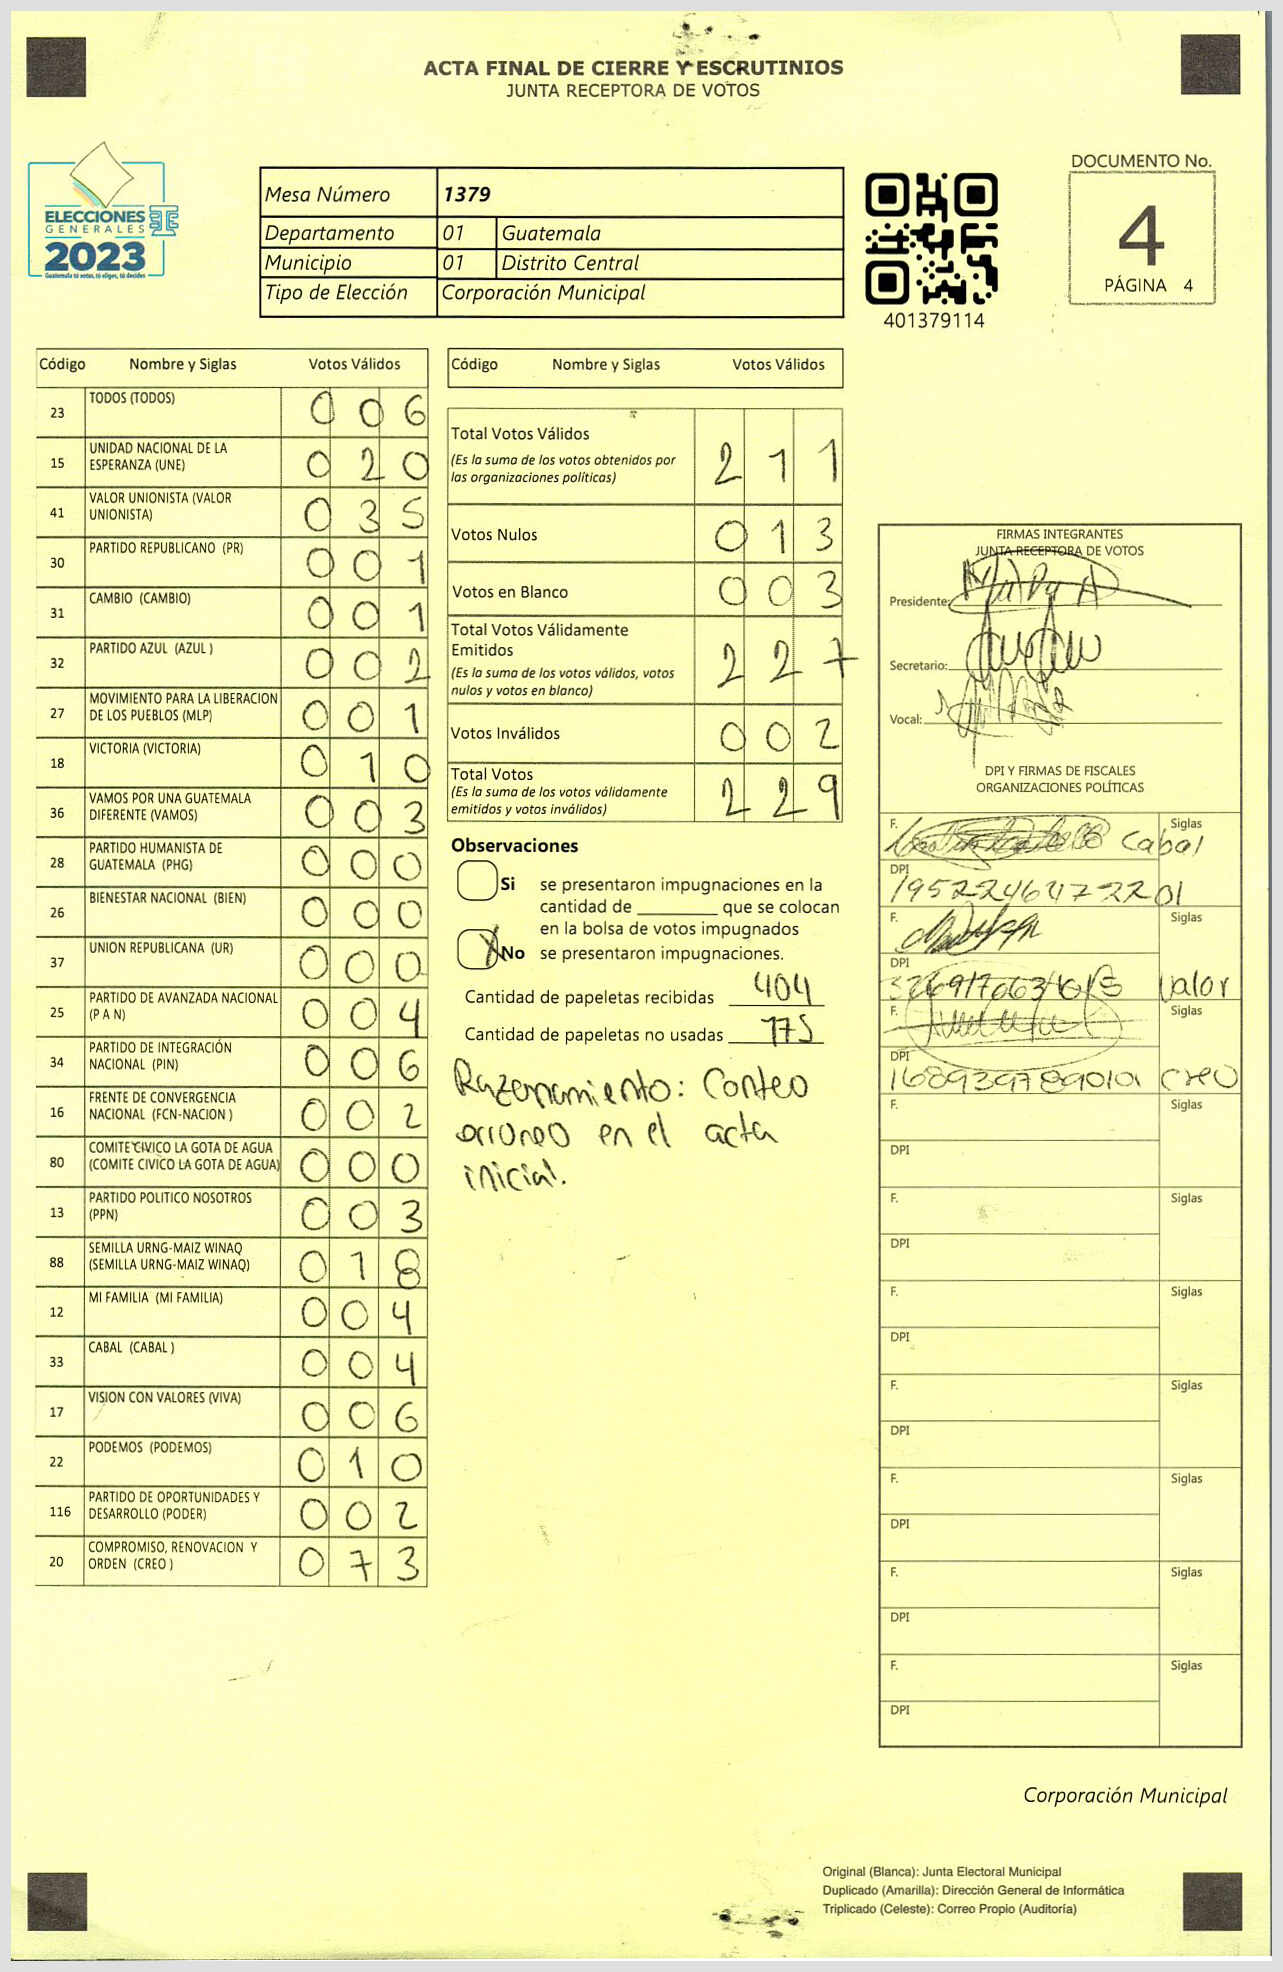 ACTA FINAL DE CIERRE Y ESCRUTINIOS
JUNTA RECEPTORA DE VOTOS
ELECCIONES
GENERALES
2023
Guatemala tú votas, tú eliges, tú decides
Mesa Número 1379
Departamento 01 Guatemala
Municipio 01 Distrito Central
Tipo de Elección Corporación Municipal
401379114
DOCUMENTO No.
4
PÁGINA 4
Código Nombre y Siglas Votos Válidos
23 TODOS (TODOS) 0 0 6
15 UNIDAD NACIONAL DE LA
ESPERANZA (UNE) 0 2 0
41 VALOR UNIONISTA (VALOR
UNIONISTA) 0 3 5
30 PARTIDO REPUBLICANO (PR) 0 0 1
31 CAMBIO (CAMBIO) 0 0 1
32 PARTIDO AZUL (AZUL ) 0 0 2
27 MOVIMIENTO PARA LA LIBERACION
DE LOS PUEBLOS (MLP) 0 0 1
18 VICTORIA (VICTORIA) 0 1 0
36 VAMOS POR UNA GUATEMALA
DIFERENTE (VAMOS) 0 0 3
28 PARTIDO HUMANISTA DE
GUATEMALA (PHG) 0 0 0
26 BIENESTAR NACIONAL (BIEN) 0 0 0
37 UNION REPUBLICANA (UR) 0 0 0
25 PARTIDO DE AVANZADA NACIONAL
(P A N) 0 0 4
34 PARTIDO DE INTEGRACIÓN
NACIONAL (PIN) 0 0 6
16 FRENTE DE CONVERGENCIA
NACIONAL (FCN-NACION ) 0 0 2
80 COMITE CIVICO LA GOTA DE AGUA
(COMITE CIVICO LA GOTA DE AGUA) 0 0 0
13 PARTIDO POLITICO NOSOTROS
(PPN) 0 0 3
88 SEMILLA URNG-MAIZ WINAQ
(SEMILLA URNG-MAIZ WINAQ) 0 1 8
12 MI FAMILIA (MI FAMILIA) 0 0 4
33 CABAL (CABAL ) 0 0 4
17 VISION CON VALORES (VIVA) 0 0 6
22 PODEMOS (PODEMOS) 0 1 0
116 PARTIDO DE OPORTUNIDADES Y
DESARROLLO (PODER) 0 0 2
20 COMPROMISO, RENOVACION Y
ORDEN (CREO ) 0 7 3
Código Nombre y Siglas Votos Válidos
Total Votos Válidos 2 1 1
(Es la suma de los votos obtenidos por
las organizaciones políticas)
Votos Nulos 0 1 3
Votos en Blanco 0 0 3
Total Votos Válidamente
Emitidos 2 2 7
(Es la suma de los votos válidos, votos
nulos y votos en blanco)
Votos Inválidos 0 0 2
Total Votos 2 2 9
(Es la suma de los votos válidamente
emitidos y votos inválidos)
Observaciones
Si se presentaron impugnaciones en la
cantidad de ________ que se colocan
en la bolsa de votos impugnados
X No se presentaron impugnaciones.
Cantidad de papeletas recibidas 404
Cantidad de papeletas no usadas 175
Razonamiento: Conteo
erroneo en el acta
inicial.
FIRMAS INTEGRANTES
JUNTA RECEPTORA DE VOTOS
Presidente:
Secretario:
Vocal:
DPI Y FIRMAS DE FISCALES
ORGANIZACIONES POLÍTICAS
F. Siglas
Cabal
DPI
F. Siglas
DPI
Valor
F. Siglas
DPI
1689397890101 CREO
F. Siglas
DPI
F. Siglas
DPI
F. Siglas
DPI
F. Siglas
DPI
F. Siglas
DPI
F. Siglas
DPI
F. Siglas
DPI
Corporación Municipal
Original (Blanca): Junta Electoral Municipal
Duplicado (Amarilla): Dirección General de Informática
Triplicado (Celeste): Correo Propio (Auditoría)